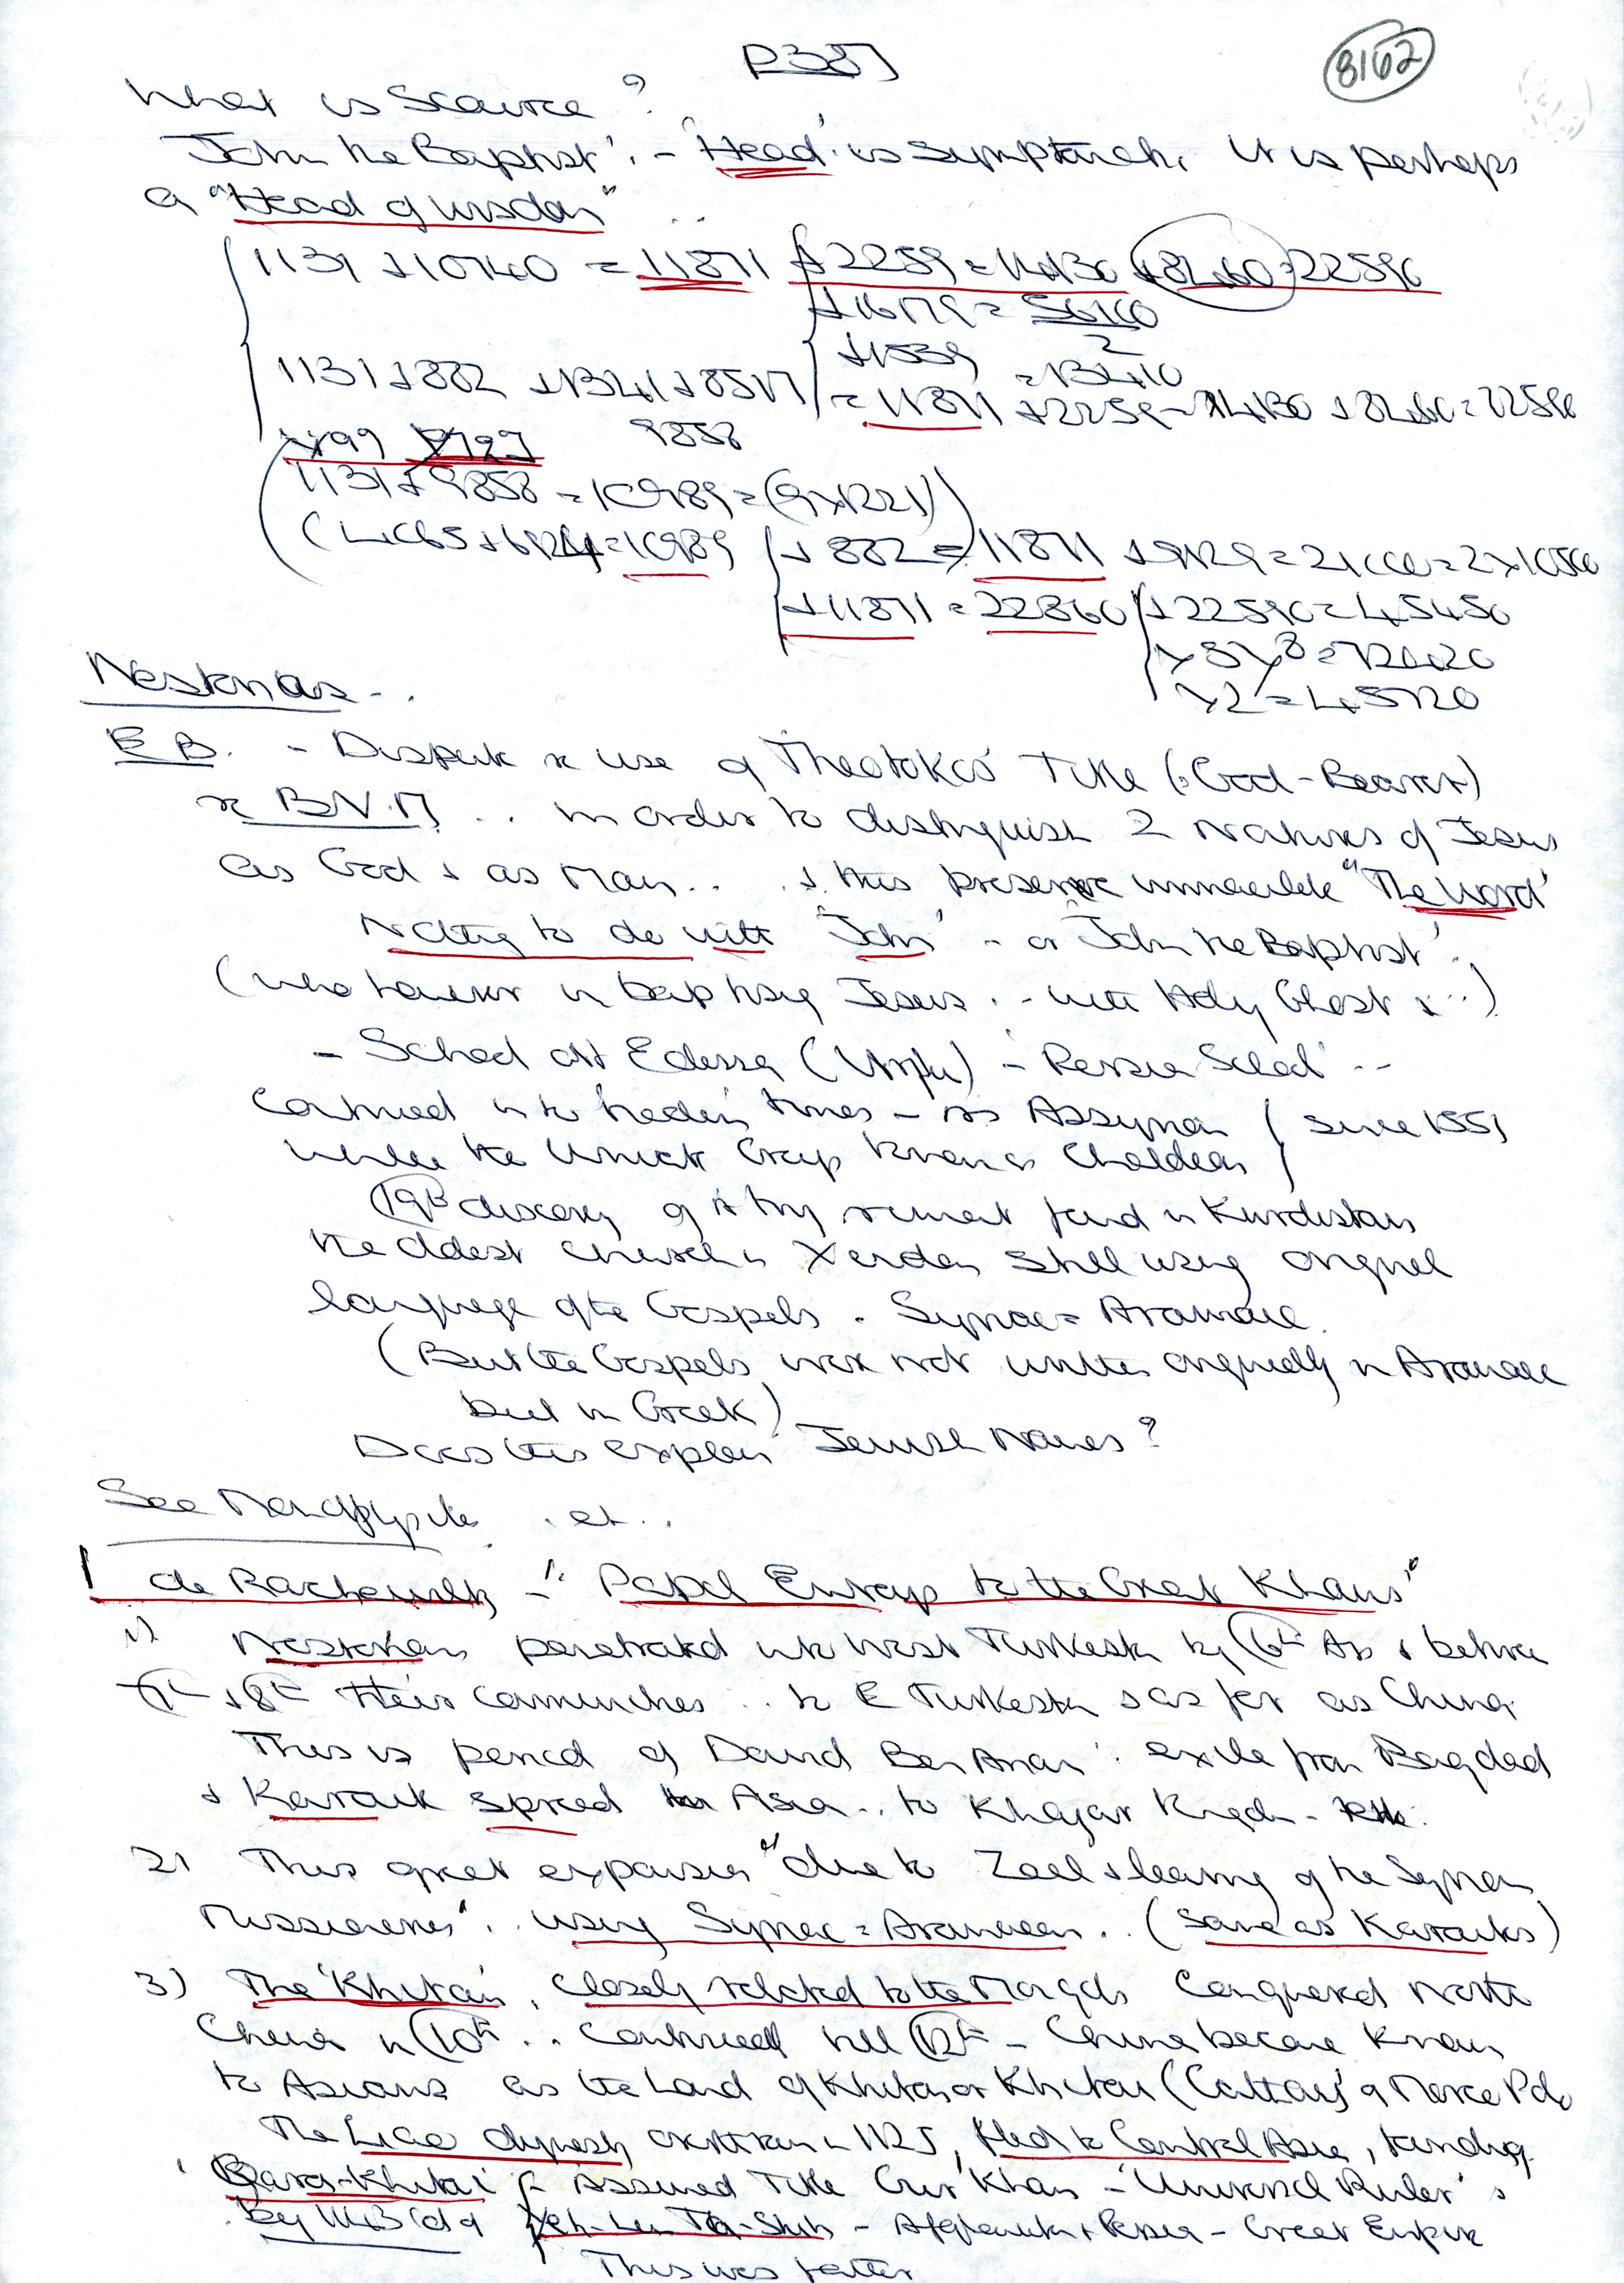 8162
What is Source?
John the Baptist'. - 'Head' is symptomatic it is perhaps
a "Head of wisdom" ..
1131 + 10740 = 11871 + 2259 = 14130 + 8460 = 22590
1131 + 882 + 1341 + 8517 = 11871 + 2259 = 14130 + 8460 = 22590
9858
1131 + 9858 = 10989 = (9x1221)
(4065 + 6924 = 10989 + 882 = 11871 + 9129 = 21000 = 2x10500
+ 11871 = 22860 + 22590 = 45450
x2 = 45720
Nestorians ..
E B. - Dispute re use of Theotokos' Title (God-Bearer)
re B.V.M. .. in order to distinguish 2 natures of Jesus
as God + as Man .. + this preserve immaculate "The Word"
Nothing to do with 'John' - or John the Baptist'.
(who however in baptising Jesus .. with Holy Ghost ..)
- School at Edessa (Urfa) - Persian School' --
Continued into modern times - as Assyrian (since 1551
while the Uniate Group known as Chaldean
19th discovery of a tiny remnant found in Kurdistan
the oldest church in Xendom still using original
language of the Gospels. Syriac = Aramaic.
(But the Gospels were not written originally in Aramaic
but in Greek)
Does this explain Jewish Names?
See . et ..
I de Rachewiltz - "Papal Envoys to the Great Khans"
1) Nestorians penetrated into West Turkestan by 6th AD + before
7th + 8th their communities .. to E Turkestan + as far as China
This is period of David Ben Anan'. exile from Bagdad
+ Karaite spread thru Asia .. to Khazar Kingdom -
2) This great expansion "due to Zeal + learning of the Syrian
Missionaries". using Syriac = Aramaean. (same as Karaites)
3) The 'Khitan', closely related to the Mongols conquered North
China in 10th .. continued till 12th - China became known
to Asians as the Land of Khitan or Khitai (Cathay' of Marco Polo
The Liao dynasty overthrown in 1125, fled to Central Asia, founding
Qara-Khitai - Assumed Title Gur Khan - 'Universal Ruler' +
by 1143 (d of Yeh-Lu Ta-Shih - Afghanistan + Persia - Great Empire
This was